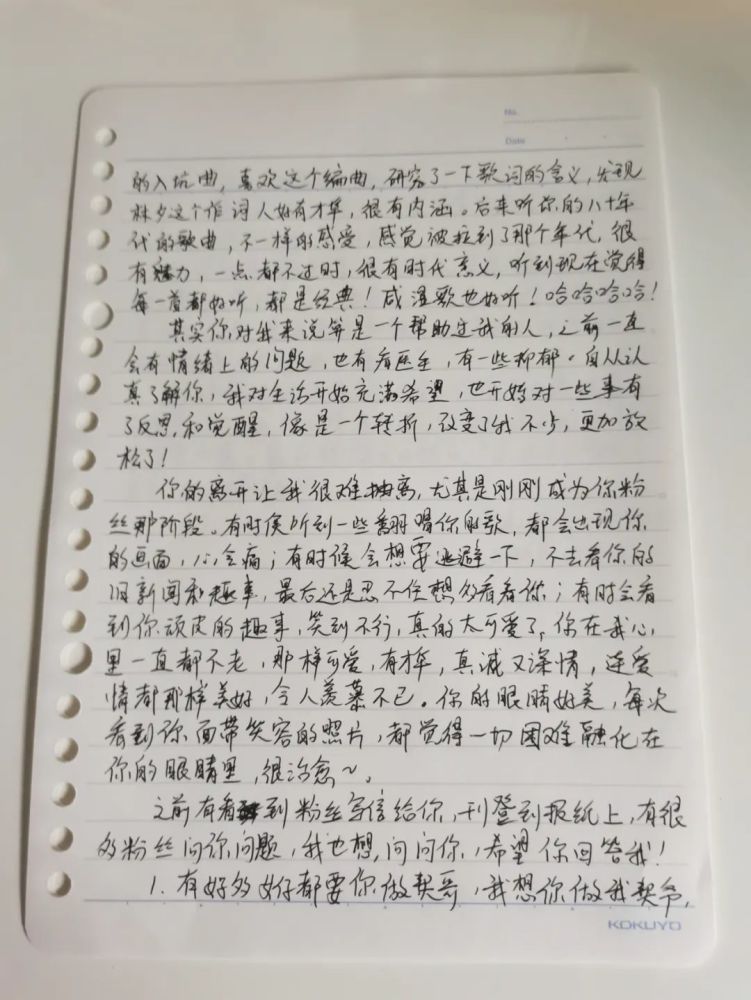 No.
Date
的入坑曲，喜欢这个编曲，研究了一下歌词的含义，发现
林夕这个作词人好有才华，很有内涵。后来听你的八十年
代的歌曲，不一样的感受，感觉被拉到了那个年代，很
有魅力，一点都不过时，很有时代意义，听到现在觉得
每一首都好听，都是经典！咸湿歌也好听！哈哈哈哈！
其实你对我来说算是一个帮助过我的人，之前一直
会有情绪上的问题，也有看医生，有一些抑郁。自从认
真了解你，我对生活开始充满希望，也开始对一些事有
了反思和觉醒，像是一个转折，改变了我不少，更加放
松了！
你的离开让我很难抽离，尤其是刚刚成为你粉
丝那阶段。有时候听到一些翻唱你的歌，都会出现你
的画面，心会痛；有时候会想要逃避一下，不去看你的
旧新闻和趣事，最后还是忍不住想多看看你；有时会看
到你顽皮的趣事，笑到不行，真的太可爱了。你在我心
里一直都不老，那样可爱，有才华，真诚又深情，连爱
情都那样美好，令人羡慕不已。你的眼睛好美，每次
看到你面带笑容的照片，都觉得一切困难融化在
你的眼睛里，很治愈～。
之前有看到粉丝写信给你，刊登到报纸上，有很
多粉丝问你问题，我也想问问你，希望你回答我！
1. 有好多女仔都要你做契哥，我想你做我契爷，
KOKUYO